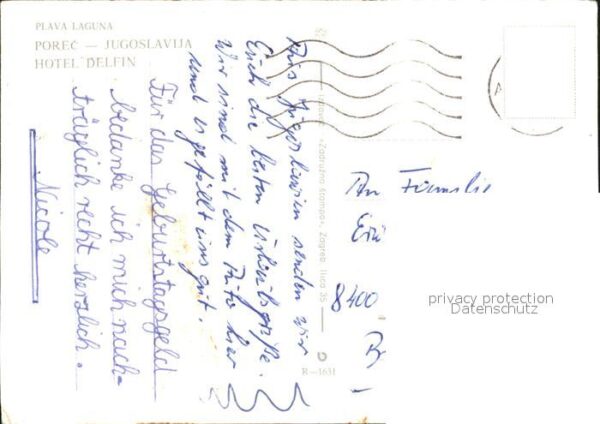 PLAVA LAGUNA
POREČ — JUGOSLAVIJA
HOTEL DELFIN
Aus Jugoslawien senden wir
Euch die besten Urlaubsgrüße.
Wir sind mit dem Auto hier
und es gefällt uns gut.
Für das Geburtstagsgeld
bedanke ich mich nach-
träglich recht herzlich.
Nicole
»Zadružna štampa«, Zagreb, Ilica 35
R—1631
An Familie
8400
privacy protection
Datenschutz